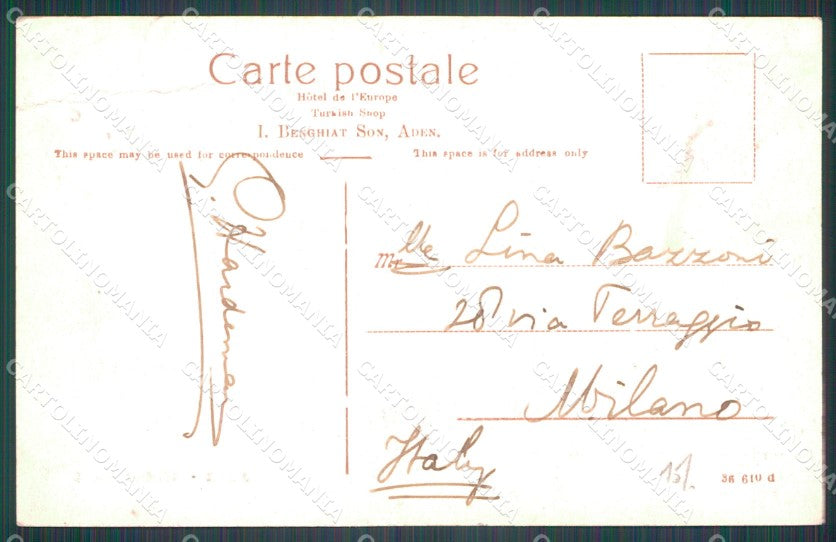 Carte postale
Hôtel de l'Europe
Turkish Shop
I. BENGHIAT SON, ADEN.
This space may be used for correspondence
This space is for address only
Mlle Lina Bazzoni
28 via Terraggio
Milano
Italy
15/.
36 610 d
CARTOLINOMANIA